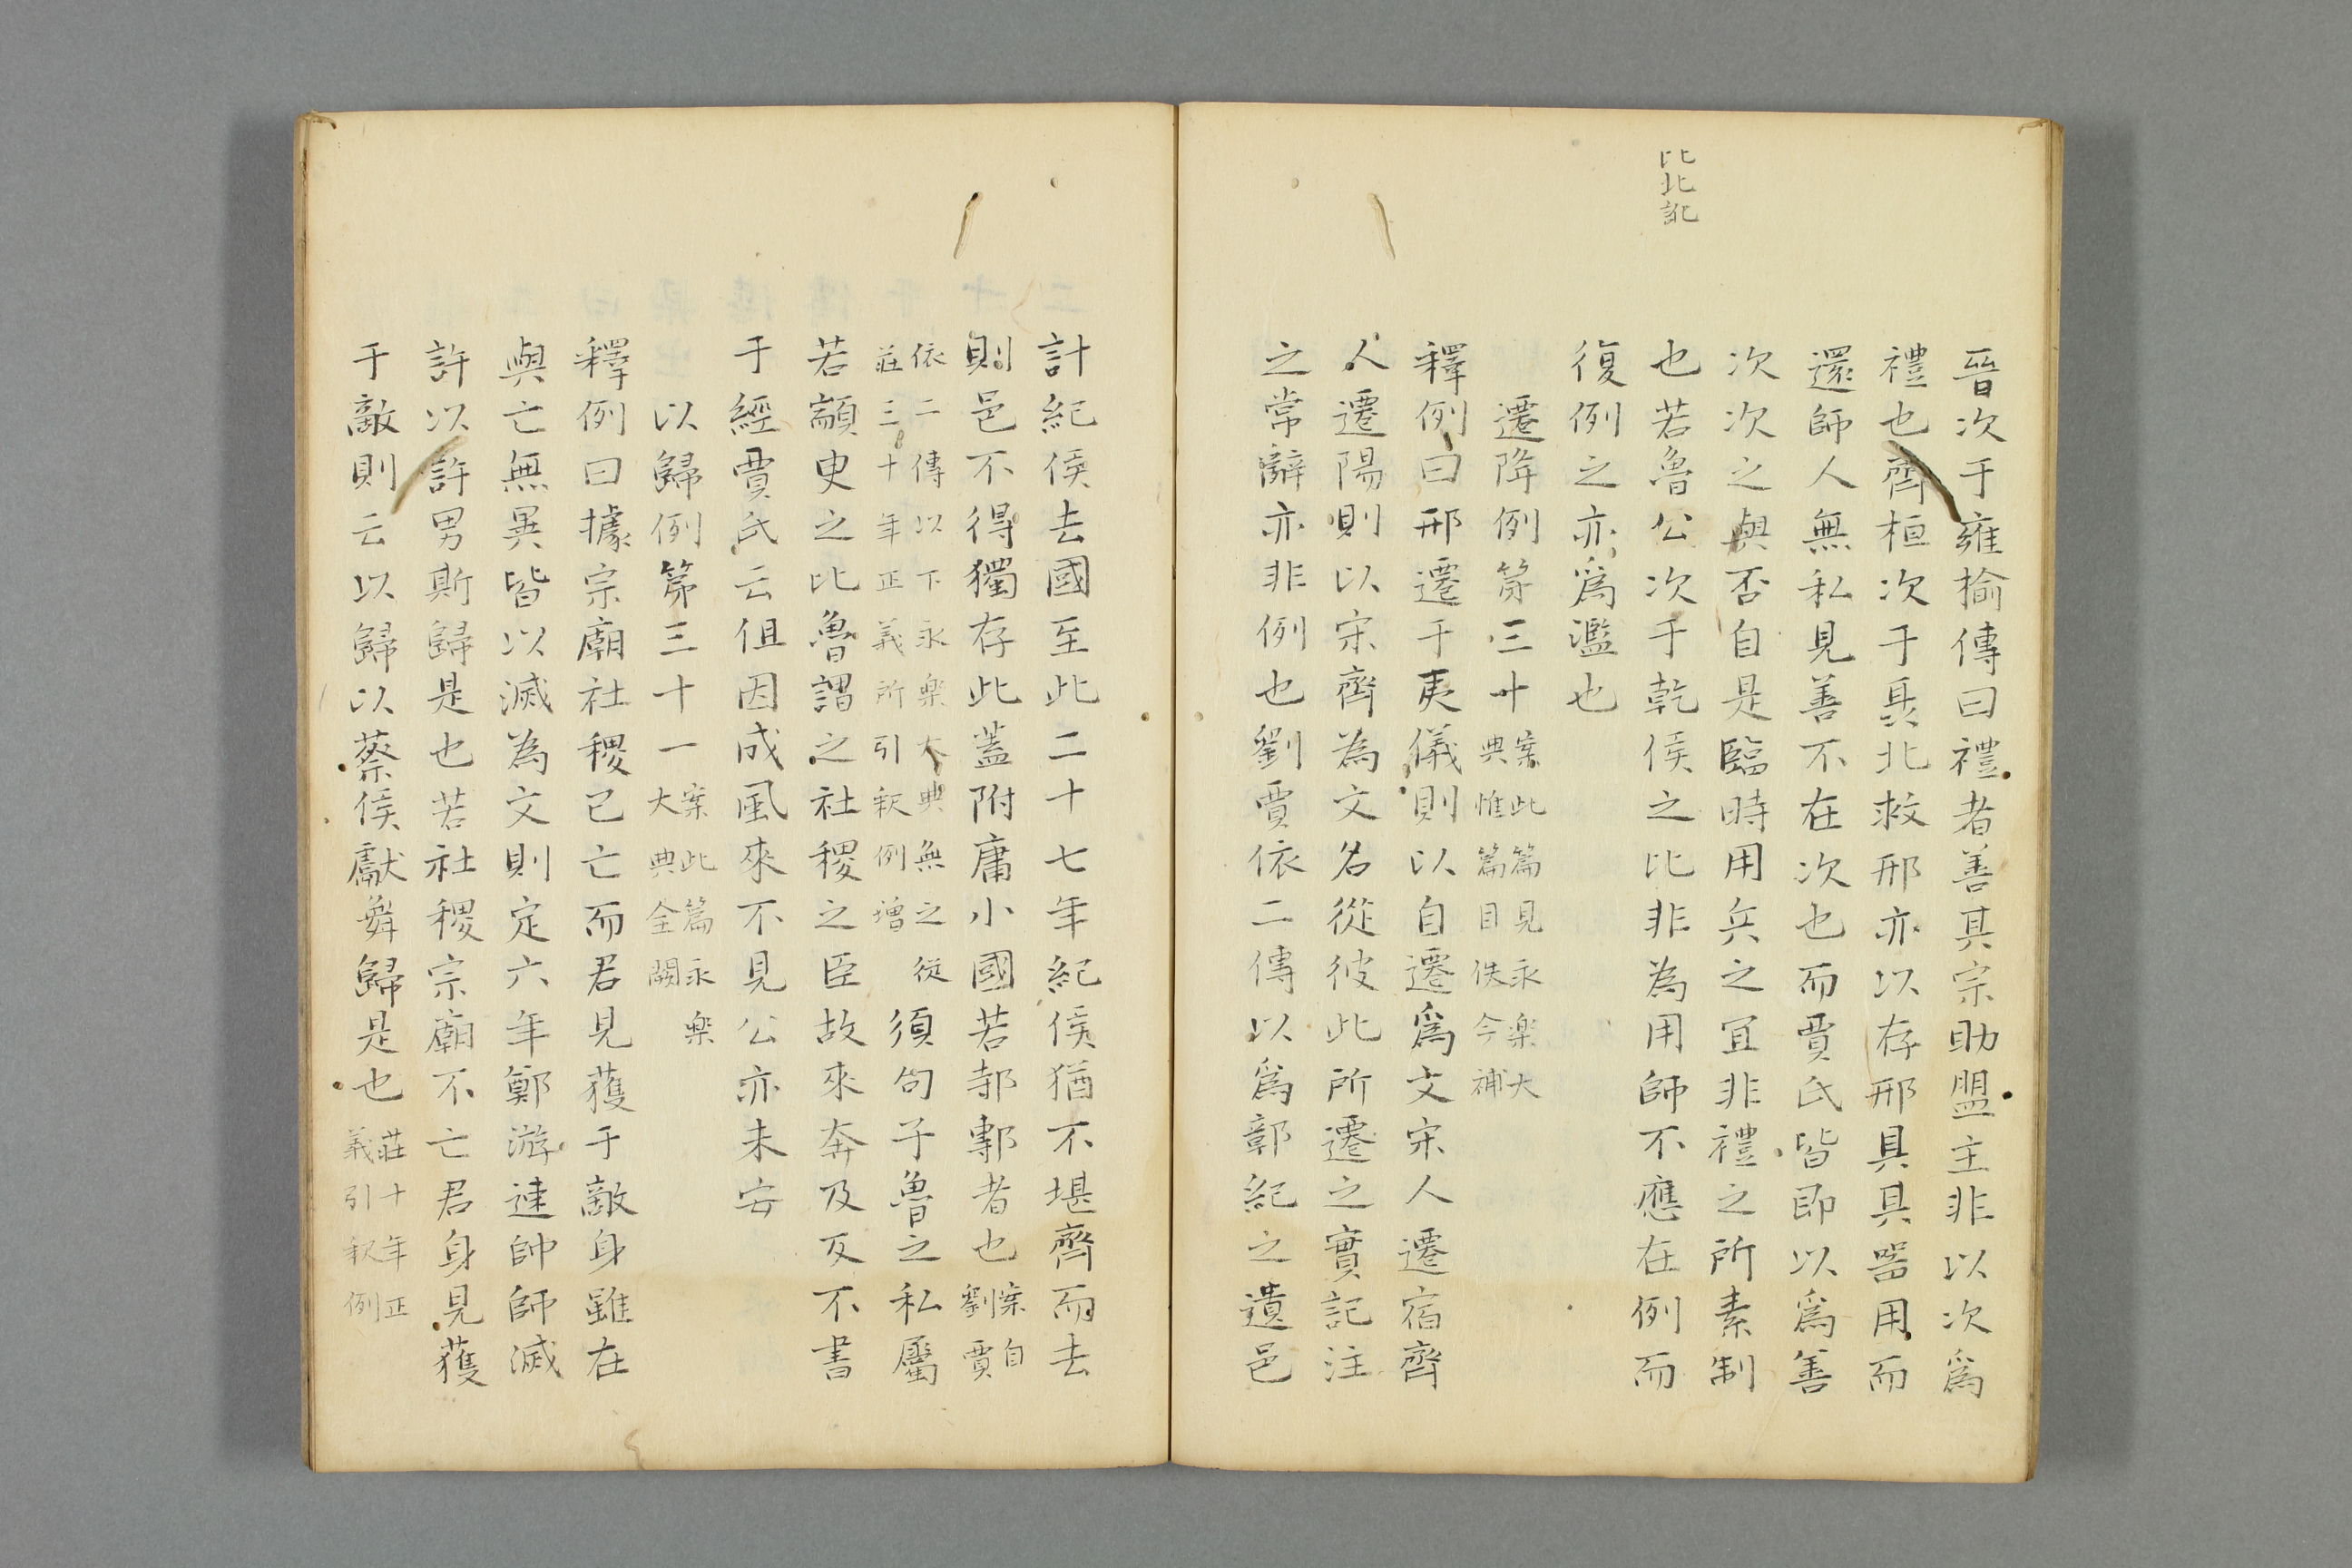 比北訛
晉次于雍揄傳曰禮者善其宗助盟主非以次爲
禮也齊桓次于聶北救邢亦以存邢具其器用而
還師人無私見善不在次也而賈氏皆即以爲善
次次之與否自是臨時用兵之宜非禮之所素制
也若魯公次于乾侯之比非為用師不應在例而
復例之亦爲濫也
遷降例第三十案此篇見永楽大典惟篇篇目佚今補
釋例曰邢遷于夷儀則以自遷爲文宋人遷宿齊
人遷陽則以宋齊為文名從彼此所遷之實記注
之常辭亦非例也劉賈依二傳以爲鄣紀之遺邑
計紀侯去國至此二十七年紀侯猶不堪齊而去
則邑不得獨存此蓋附庸小國若邿鄟者也案自劉賈
依二傳以下永楽大典無之從莊三十年正義所引釈例增須句子魯之私屬
若顓臾之比魯謂之社稷之臣故來奔及反不書
于經賈氏云但因成風來不見公亦未安
以歸例第三十一案此篇永楽大典全闕
釋例曰據宗廟社稷已亡而君見獲于敵身雖在
與亡無異皆以滅為文則定六年鄭游速帥師滅
許以許男斯歸是也若社稷宗廟不亡君身見獲
于敵則云以歸以蔡侯獻舞歸是也莊十年正義引釈例